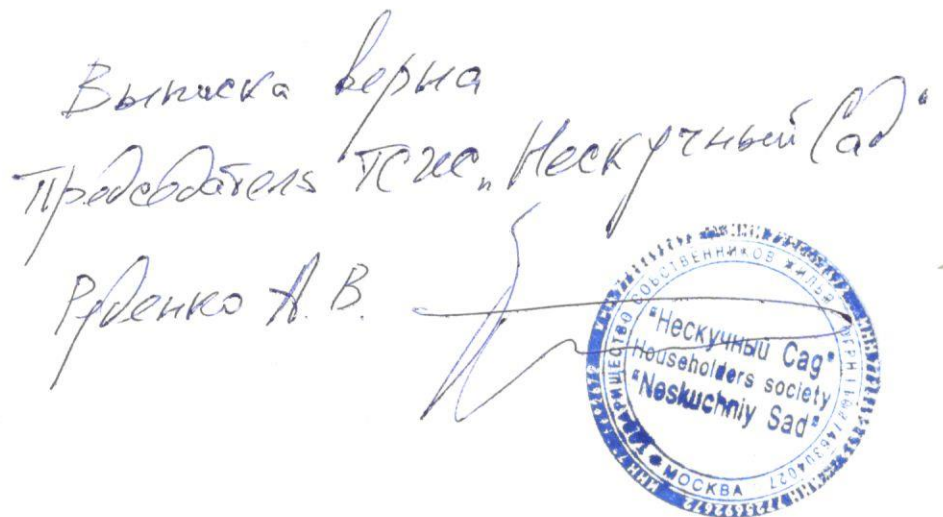 Выписка верна
Председатель ТСЖ „Нескучный Сад"
Руденко А. В.
ТОВАРИЩЕСТВО СОБСТВЕННИКОВ ЖИЛЬЯ
"Нескучный Сад"
Householders society
"Neskuchniy Sad"
МОСКВА